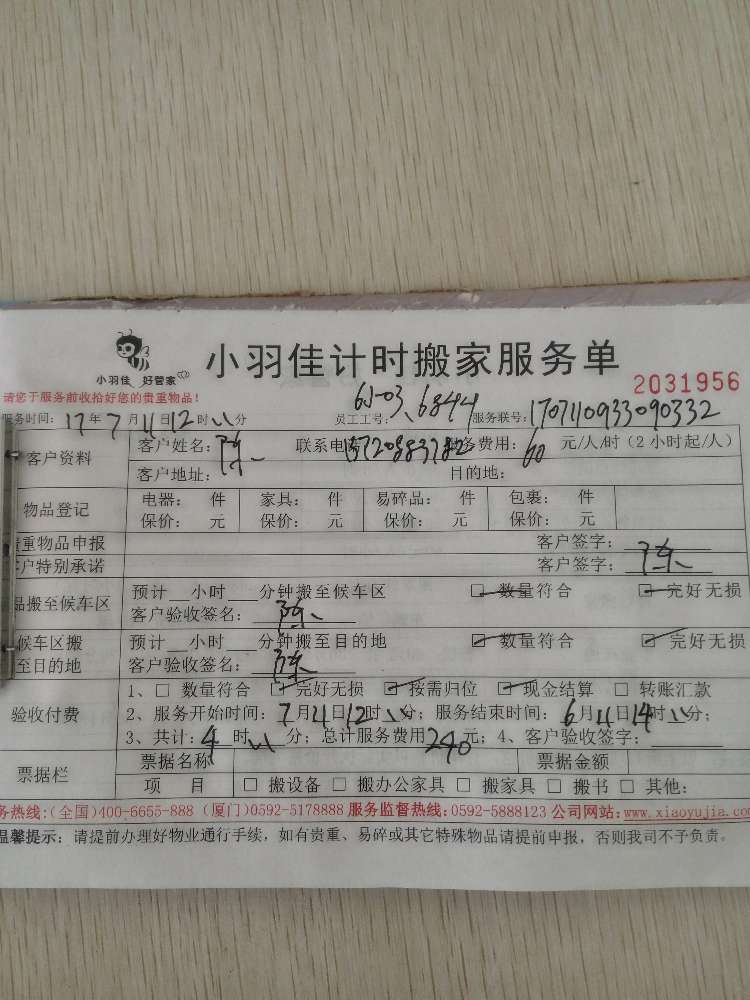 小羽佳 好管家
小羽佳计时搬家服务单
2031956
请您于服务前收拾好您的贵重物品!
服务时间: 17年7月11日12时 分 员工工号: 6844 服务联号: 1707110933090332
客户资料
客户姓名: 陈 联系电 服务费用: 60 元/人/时(2小时起/人)
客户地址: 目的地:
物品登记
电器: 件 家具: 件 易碎品: 件 包裹: 件
保价: 元 保价: 元 保价: 元 保价: 元
重物品申报 客户签字:
户特别承诺 客户签字: 陈
品搬至候车区
预计__小时___分钟搬至候车区 ☑ 数量符合 ☑ 完好无损
客户验收签名: 陈
候车区搬
至目的地
预计__小时___分钟搬至目的地 ☑ 数量符合 ☑ 完好无损
客户验收签名: 陈
验收付费
1、□ 数量符合 ☑ 完好无损 ☑ 按需归位 ☑ 现金结算 □ 转账汇款
2、服务开始时间: 7月11日12时 分; 服务结束时间: 6月11日14时 分;
3、共计: 4时 分; 总计服务费用240元; 4、客户验收签字:
票据栏
票据名称 票据金额
项 目 □ 搬设备 □ 搬办公家具 □ 搬家具 □ 搬书 □ 其他:
务热线:(全国)400-6655-888 (厦门)0592-5178888 服务监督热线:0592-5888123 公司网站:www.xiaoyujia.com
温馨提示: 请提前办理好物业通行手续, 如有贵重、易碎或其它特殊物品请提前申报, 否则我司不予负责。